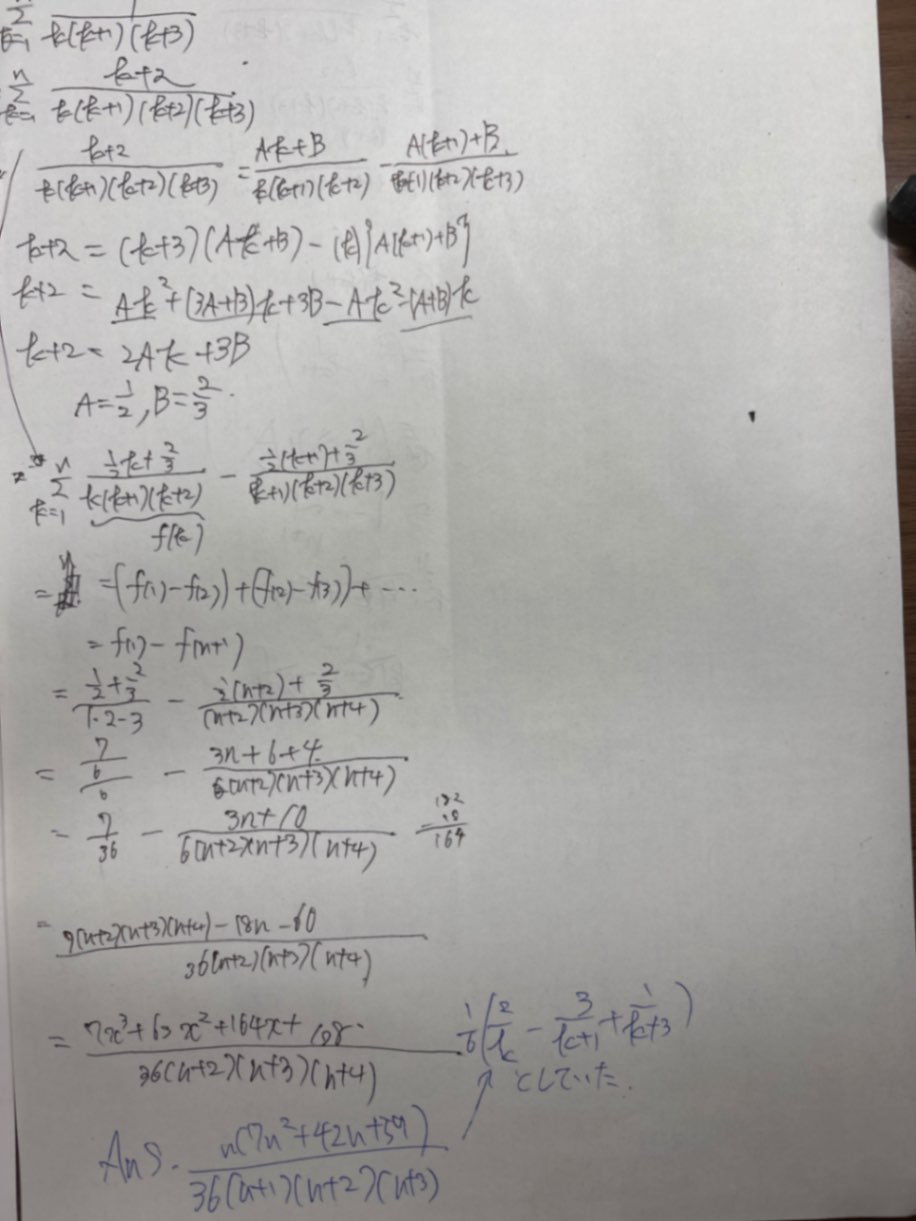 Σ_{k=1} 1/(k(k+1)(k+3))
Σ^{n}_{k=1} (k+2)/(k(k+1)(k+2)(k+3))
(k+2)/(k(k+1)(k+2)(k+3)) = (Ak+B)/(k(k+1)(k+2)) - (A(k+1)+B)/((k+1)(k+2)(k+3))
k+2 = (k+3)(Ak+B) - (k){A(k+1)+B}
k+2 = Ak²+(3A+B)k+3B-Ak²-(A+B)k
k+2 = 2Ak+3B
A=1/2, B=2/3.
Σ^{n}_{k=1} (1/2k+2/3)/(k(k+1)(k+2)) - (1/2(k+1)+2/3)/((k+1)(k+2)(k+3))
f(k)
= =(f(1)-f(2))+(f(2)-f(3))+ ...
= f(1)-f(n+1)
= (1/2+2/3)/(1·2-3) - (1/2(n+2)+2/3)/((n+2)(n+3)(n+4))
= (7/6)/6 - (3n+6+4)/(6(n+2)(n+3)(n+4))
= 7/36 - (3n+10)/(6(n+2)(n+3)(n+4))
182
-18
164
= (7(n+2)(n+3)(n+4)-18n-60)/(36(n+2)(n+3)(n+4))
= (7x³+63x²+164x+108)/(36(n+2)(n+3)(n+4))
1/6(2/k - 3/(k+1) + 1/(k+3))
としていた.
Ans. n(7n²+42n+59)/(36(n+1)(n+2)(n+3))